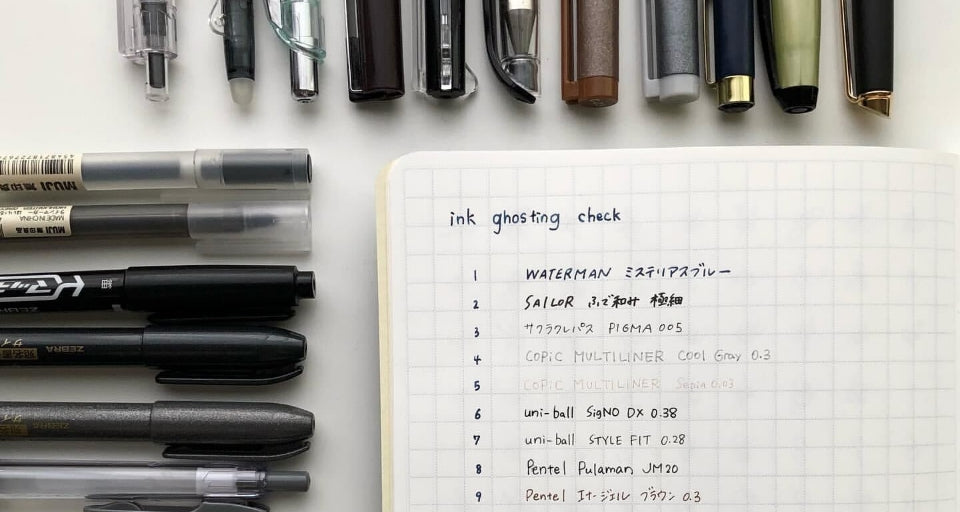 MUJI 無印良品
MADE IN CHINA
MUJI 無印良品
ZEBRA
ZEBRA
ink ghosting check
1 WATERMAN ミステリアスブルー
2 SAILOR ふで和み 極細
3 サクラクレパス PIGMA 005
4 COPIC MULTILINER Cool Gray 0.3
5 COPIC MULTILINER Sepia 0.03
6 uni-ball SigNO DX 0.38
7 uni-ball STYLE FIT 0.28
8 Pentel Pulaman JM20
9 Pentel エナージェル ブラウン 0.3